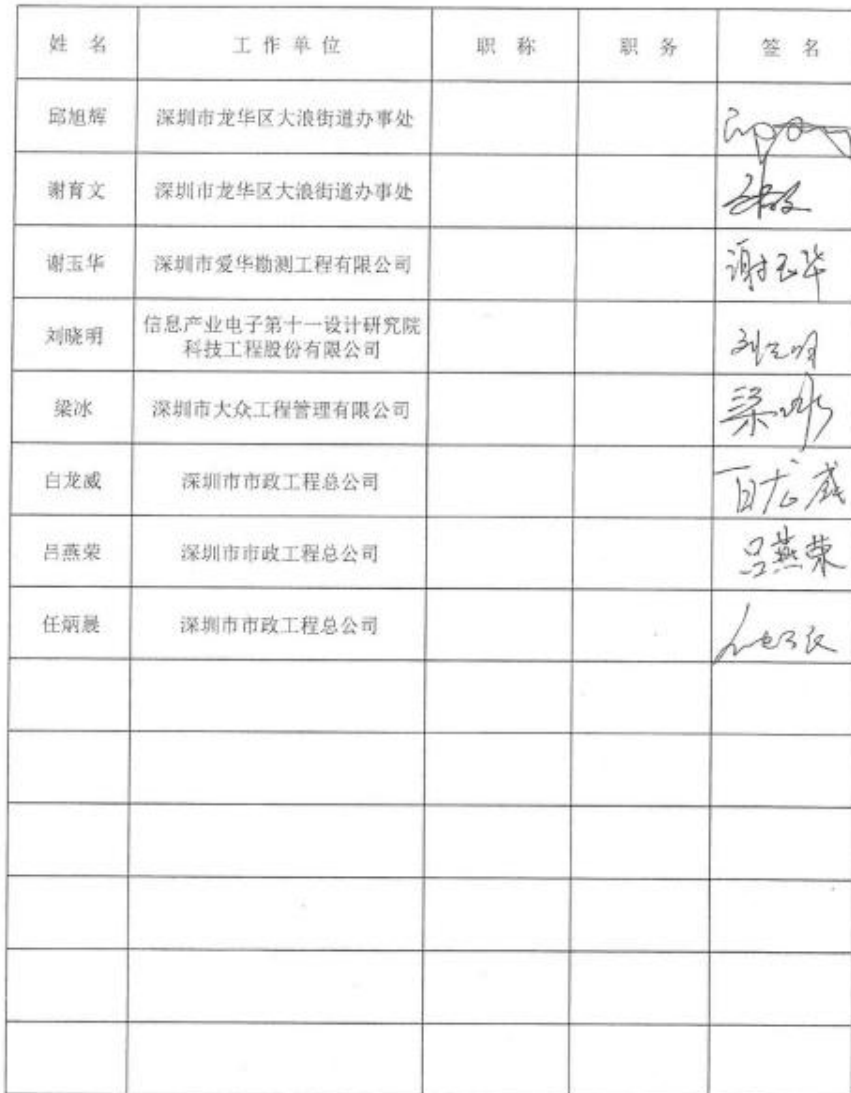 姓 名 工 作 单 位 职 称 职 务 签 名
邱旭辉 深圳市龙华区大浪街道办事处
谢育文 深圳市龙华区大浪街道办事处
谢玉华 深圳市爱华勘测工程有限公司 谢玉华
刘晓明 信息产业电子第十一设计研究院
科技工程股份有限公司
梁冰 深圳市大众工程管理有限公司 梁冰
白龙威 深圳市市政工程总公司 白龙威
吕燕荣 深圳市市政工程总公司 吕燕荣
任炳晨 深圳市市政工程总公司